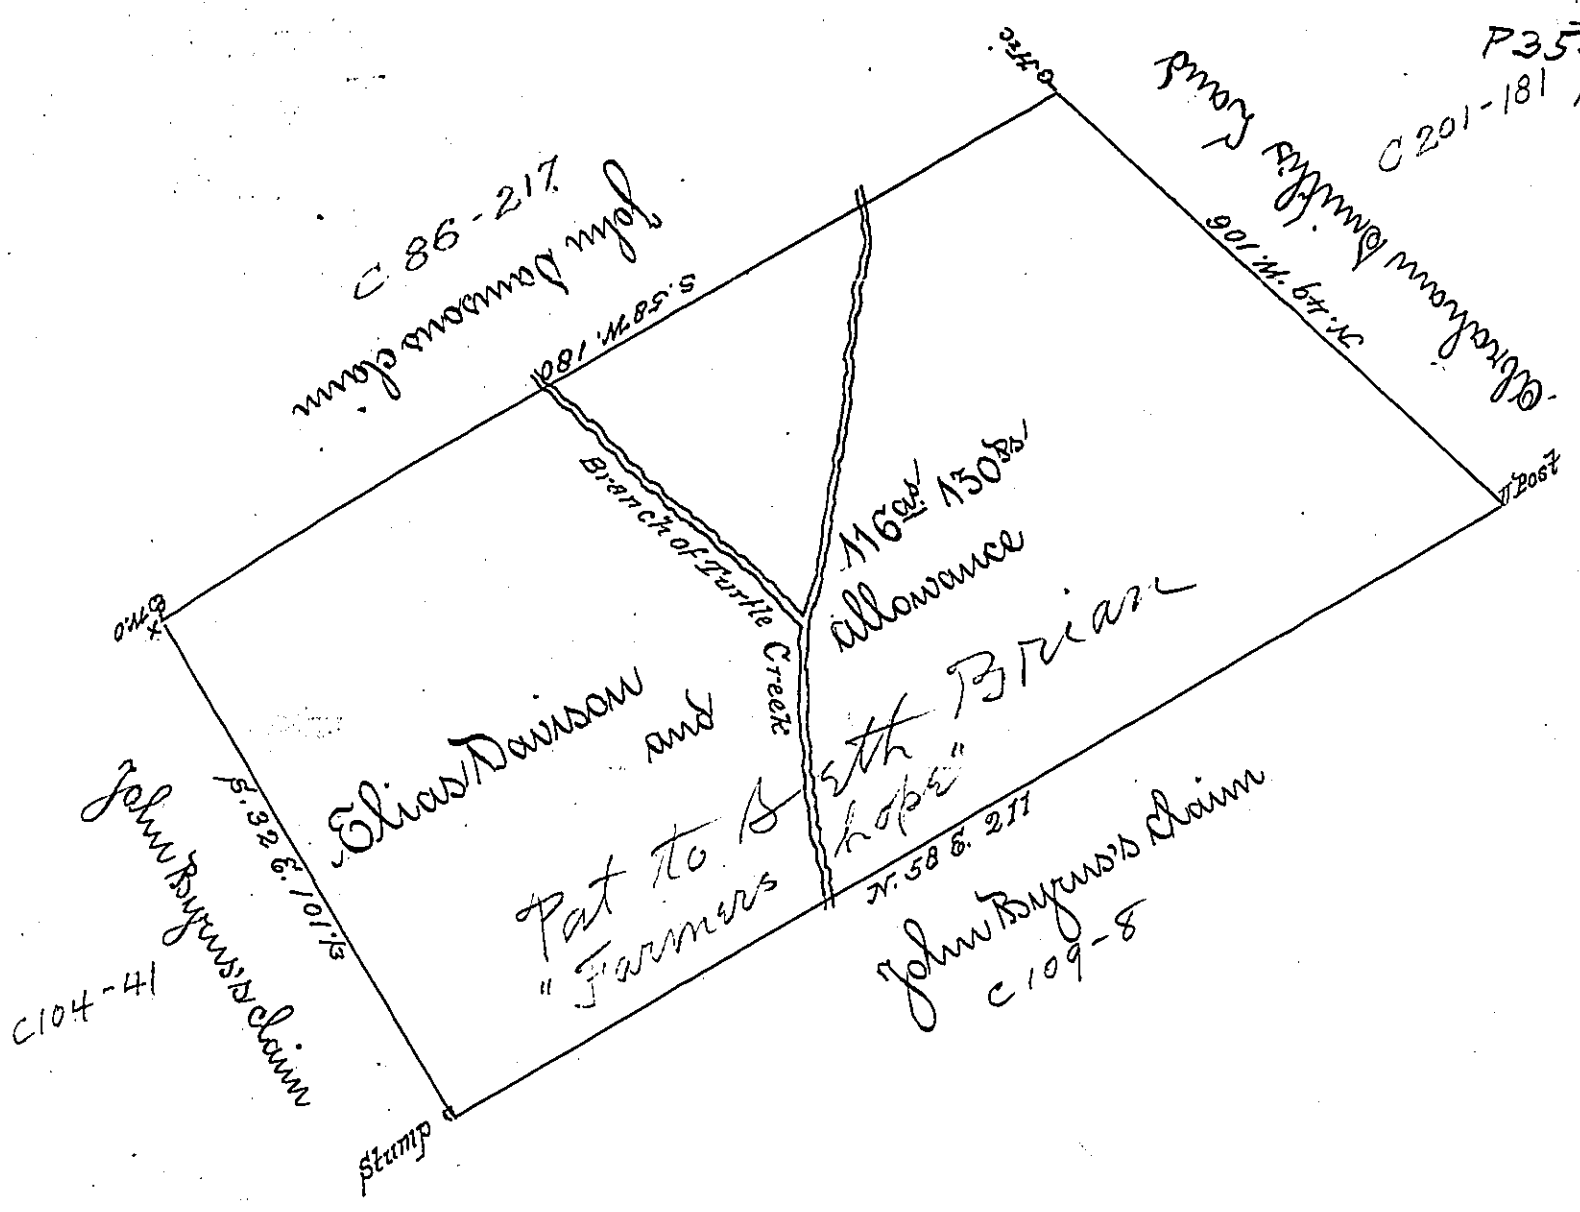 P35
C 201-181
Hic.
Abraham Smith's Land
N. 49. W. 106
C 86-217
John Dawsons claim
S. 58 W. 180
Post
Branch of Turtle Creek
116 as. 130 Ps
allowance
W.O.
Elias Davison
and
Pat to Seth Brian
"Farmers hope"
S. 32 E. 101 1/3
John Byrns's claim
C104-41
N. 58 E. 211
John Byrns's claim
C 109-8
Stump